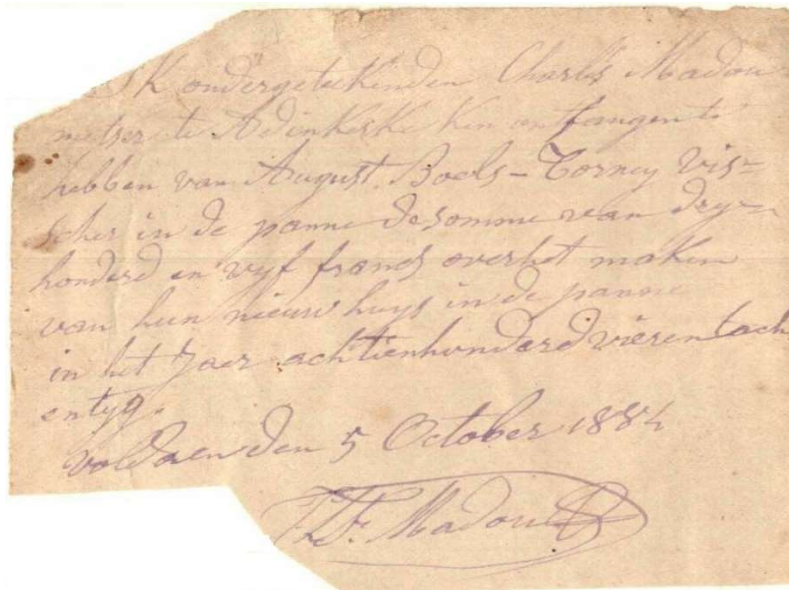 Ik ondergeteekenden Charles Madou
metser te Adinkerke ken ontfangen te
hebben van August Boels - Torney vis=
scher in de panne de somme van dry=
honderd en vyf francs over het maken
van hun nieuw huys in de panne
in het Jaer achtienhonderd vieren tach
entyg.
voldaen den 5 October 1884
Madou